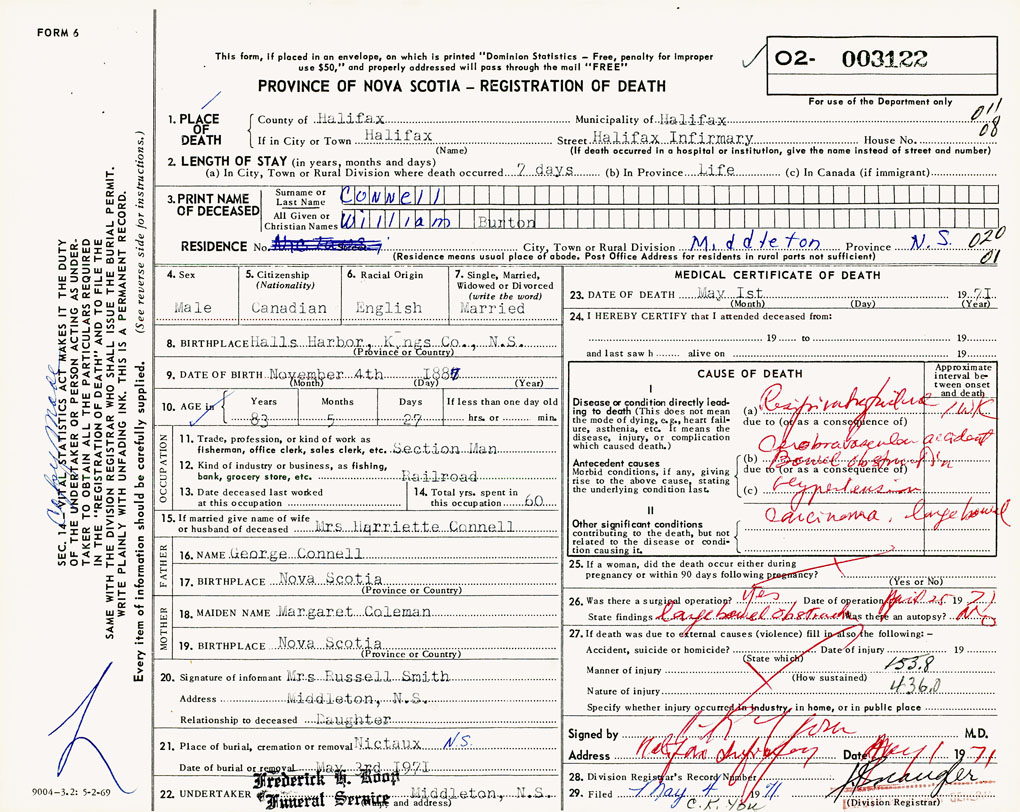 FORM 6
This form, if placed in an envelope, on which is printed "Dominion Statistics – Free, penalty for improper
use $50," and properly addressed will pass through the mail "FREE"
PROVINCE OF NOVA SCOTIA – REGISTRATION OF DEATH
O2- 003122
For use of the Department only
011
08
1. PLACE OF DEATH
County of Halifax Municipality of Halifax
If in City or Town Halifax Street Halifax Infirmary House No.
(Name) (If death occurred in a hospital or institution, give the name instead of street and number)
2. LENGTH OF STAY (in years, months and days)
(a) In City, Town or Rural Division where death occurred 7 days (b) In Province Life (c) In Canada (if immigrant)
3. PRINT NAME OF DECEASED
Surname or Last Name Connell
All Given or Christian Names William Burton
RESIDENCE No. City, Town or Rural Division Middleton Province N.S. 020
(Residence means usual place of abode. Post Office Address for residents in rural parts not sufficient) 01
4. Sex
Male
5. Citizenship
(Nationality)
Canadian
6. Racial Origin
English
7. Single, Married,
Widowed or Divorced
(write the word)
Married
8. BIRTHPLACE Halls Harbor, Kings Co., N.S.
(Province or Country)
9. DATE OF BIRTH November 4th 1887
(Month) (Day) (Year)
10. AGE in
Years Months Days If less than one day old
83 5 27 hrs. or min.
OCCUPATION
11. Trade, profession, or kind of work as
fisherman, office clerk, sales clerk, etc. Section Man
12. Kind of industry or business, as fishing,
bank, grocery store, etc. Railroad
13. Date deceased last worked
at this occupation
14. Total yrs. spent in
this occupation 60
15. If married give name of wife
or husband of deceased Mrs Harriette Connell
FATHER
16. NAME George Connell
17. BIRTHPLACE Nova Scotia
(Province or Country)
MOTHER
18. MAIDEN NAME Margaret Coleman
19. BIRTHPLACE Nova Scotia
(Province or Country)
20. Signature of informant Mrs Russell Smith
Address Middleton, N.S.
Relationship to deceased Daughter
21. Place of burial, cremation or removal Nictaux N.S.
Date of burial or removal May 3rd 1971
Frederick H. Roop
Funeral Service
22. UNDERTAKER Middleton, N.S.
and address)
MEDICAL CERTIFICATE OF DEATH
23. DATE OF DEATH May 1st 1971
(Month) (Day) (Year)
24. I HEREBY CERTIFY that I attended deceased from:
19 to 19
and last saw h alive on 19
CAUSE OF DEATH
Approximate interval between onset and death
I
Disease or condition directly leading to death (This does not mean the mode of dying, e.g., heart failure, asthenia, etc. It means the disease, injury, or complication which caused death.)
(a) Respiratory failure 1 WK
due to (or as a consequence of)
Cerebrovascular accident
Antecedent causes
Morbid conditions, if any, giving rise to the above cause, stating the underlying condition last.
(b) Bowel obstruct'n
due to (or as a consequence of)
(c) Hypertension
II
Other significant conditions contributing to the death, but not related to the disease or condition causing it.
Carcinoma, large bowel
25. If a woman, did the death occur either during
pregnancy or within 90 days following pregnancy?
(Yes or No)
26. Was there a surgical operation? Yes Date of operation April 25 1971
State findings large bowel obstruct Was there an autopsy? No
27. If death was due to external causes (violence) fill in also the following: –
Accident, suicide or homicide? Date of injury 19
(State which)
Manner of injury 153.8
(How sustained)
Nature of injury 436.0
Specify whether injury occurred in industry, in home, or in public place
Signed by M.D.
Address Halifax Infirmary Date May 1 1971
28. Division Registrar's Record Number
29. Filed May 4 1971
(Division Registrar)
C.K. You
SEC. 14 – VITAL STATISTICS ACT MAKES IT THE DUTY
OF THE UNDERTAKER OR PERSON ACTING AS UNDER-
TAKER TO OBTAIN ALL THE PARTICULARS REQUIRED
IN THE "REGISTRATION OF DEATH" AND TO FILE THE
SAME WITH THE DIVISION REGISTRAR WHO SHALL ISSUE THE BURIAL PERMIT.
WRITE PLAINLY WITH UNFADING INK. THIS IS A PERMANENT RECORD.
Every item of information should be carefully supplied. (See reverse side for instructions.)
9004–3.2: 5-2-69